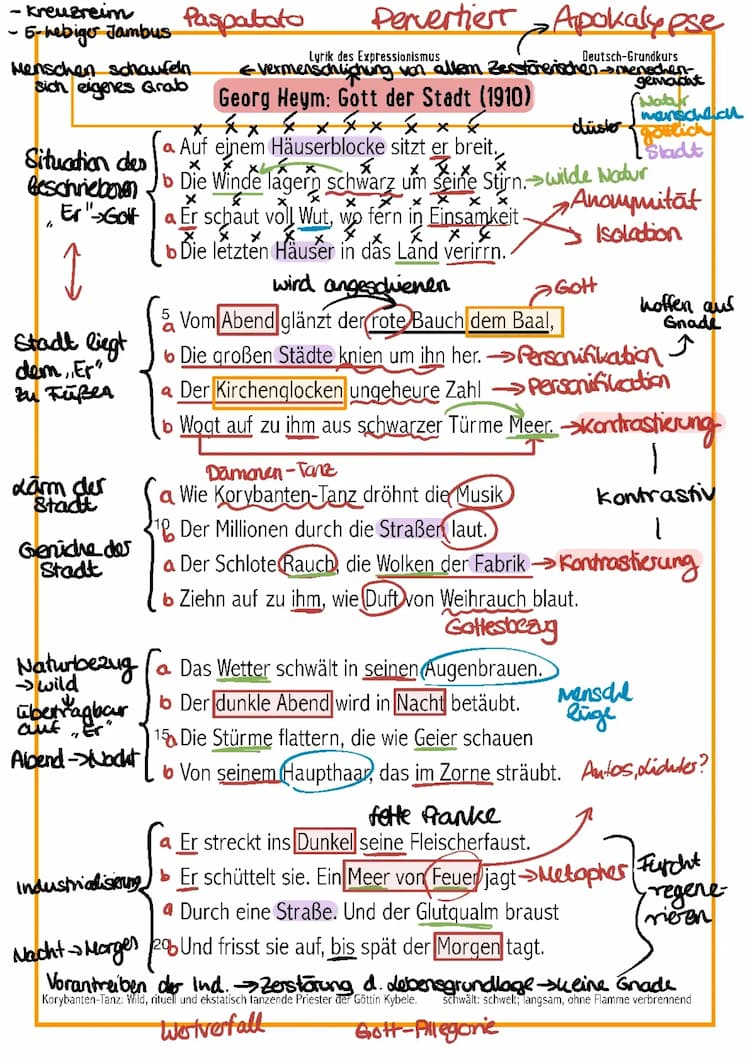 - Kreuzreim
- 5-hebiger Jambus
Paspaboto
Pervertiert
Apokalypse
Lyrik des Expressionismus
Deutsch-Grundkurs
Menschen schaufeln
sich eigenes Grab
← Vermenschlichung von allem Zerstörerischen → menschen-
gemacht
Georg Heym: Gott der Stadt (1910)
düster
Natur
menschlich
göttlich
Stadt
Situation des
beschriebenen
„Er" → Gott
a Auf einem Häuserblocke sitzt er breit.
b Die Winde lagern schwarz um seine Stirn. → wilde Natur
a Er schaut voll Wut, wo fern in Einsamkeit
b Die letzten Häuser in das Land verirrn.
Anonymität
Isolation
wird angeschienen
Gott
hoffen auf
Gnade
Stadt liegt
dem „Er"
zu Füßen
5
a Vom Abend glänzt der rote Bauch dem Baal,
b Die großen Städte knien um ihn her. → Personifikation
a Der Kirchenglocken ungeheure Zahl → Personifikation
b Wogt auf zu ihm aus schwarzer Türme Meer. → Kontrastierung
Kontrastiv
Lärm der
Stadt
Gerüche der
Stadt
Dämonen-Tanz
a Wie Korybanten-Tanz dröhnt die Musik
10
b Der Millionen durch die Straßen laut.
a Der Schlote Rauch, die Wolken der Fabrik → Kontrastierung
b Ziehn auf zu ihm, wie Duft von Weihrauch blaut.
Gottesbezug
Naturbezug
→ wild
↓
übertragbar
auf „Er"
Abend → Nacht
a Das Wetter schwält in seinen Augenbrauen.
b Der dunkle Abend wird in Nacht betäubt.
15
a Die Stürme flattern, die wie Geier schauen
b Von seinem Haupthaar, das im Zorne sträubt.
Autos, Lichter?
fette Pranke
Industrialisierung
Nacht → Morgen
a Er streckt ins Dunkel seine Fleischerfaust.
b Er schüttelt sie. Ein Meer von Feuer jagt → Metapher
a Durch eine Straße. Und der Glutqualm braust
20
b Und frisst sie auf, bis spät der Morgen tagt.
Furcht
regene-
rieren
Vorantreiben der Ind. → Zerstörung d. Lebensgrundlage → keine Gnade
Korybanten-Tanz: Wild, rituell und ekstatisch tanzende Priester der Göttin Kybele.
schwält: schwelt; langsam, ohne Flamme verbrennend
Wertverfall
Gott-Allegorie